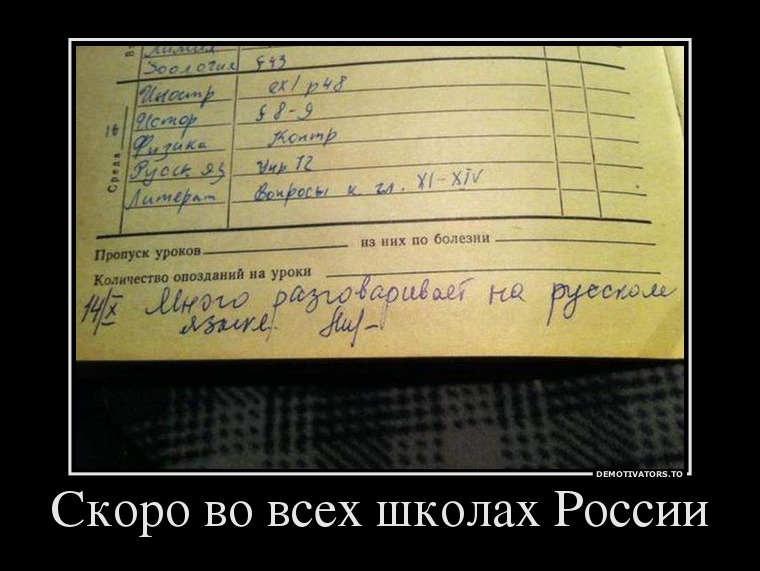 Зоология § 43
Иностр ex 1 p 48
16 Истор § 8-9
Физика Контр
Среда Русск яз Упр 72
Литерат Вопросы к гл. XI-XIV
Пропуск уроков из них по болезни
Количество опозданий на уроки
14/X Много разговаривает на русском
языке.
DEMOTIVATORS.TO
Скоро во всех школах России